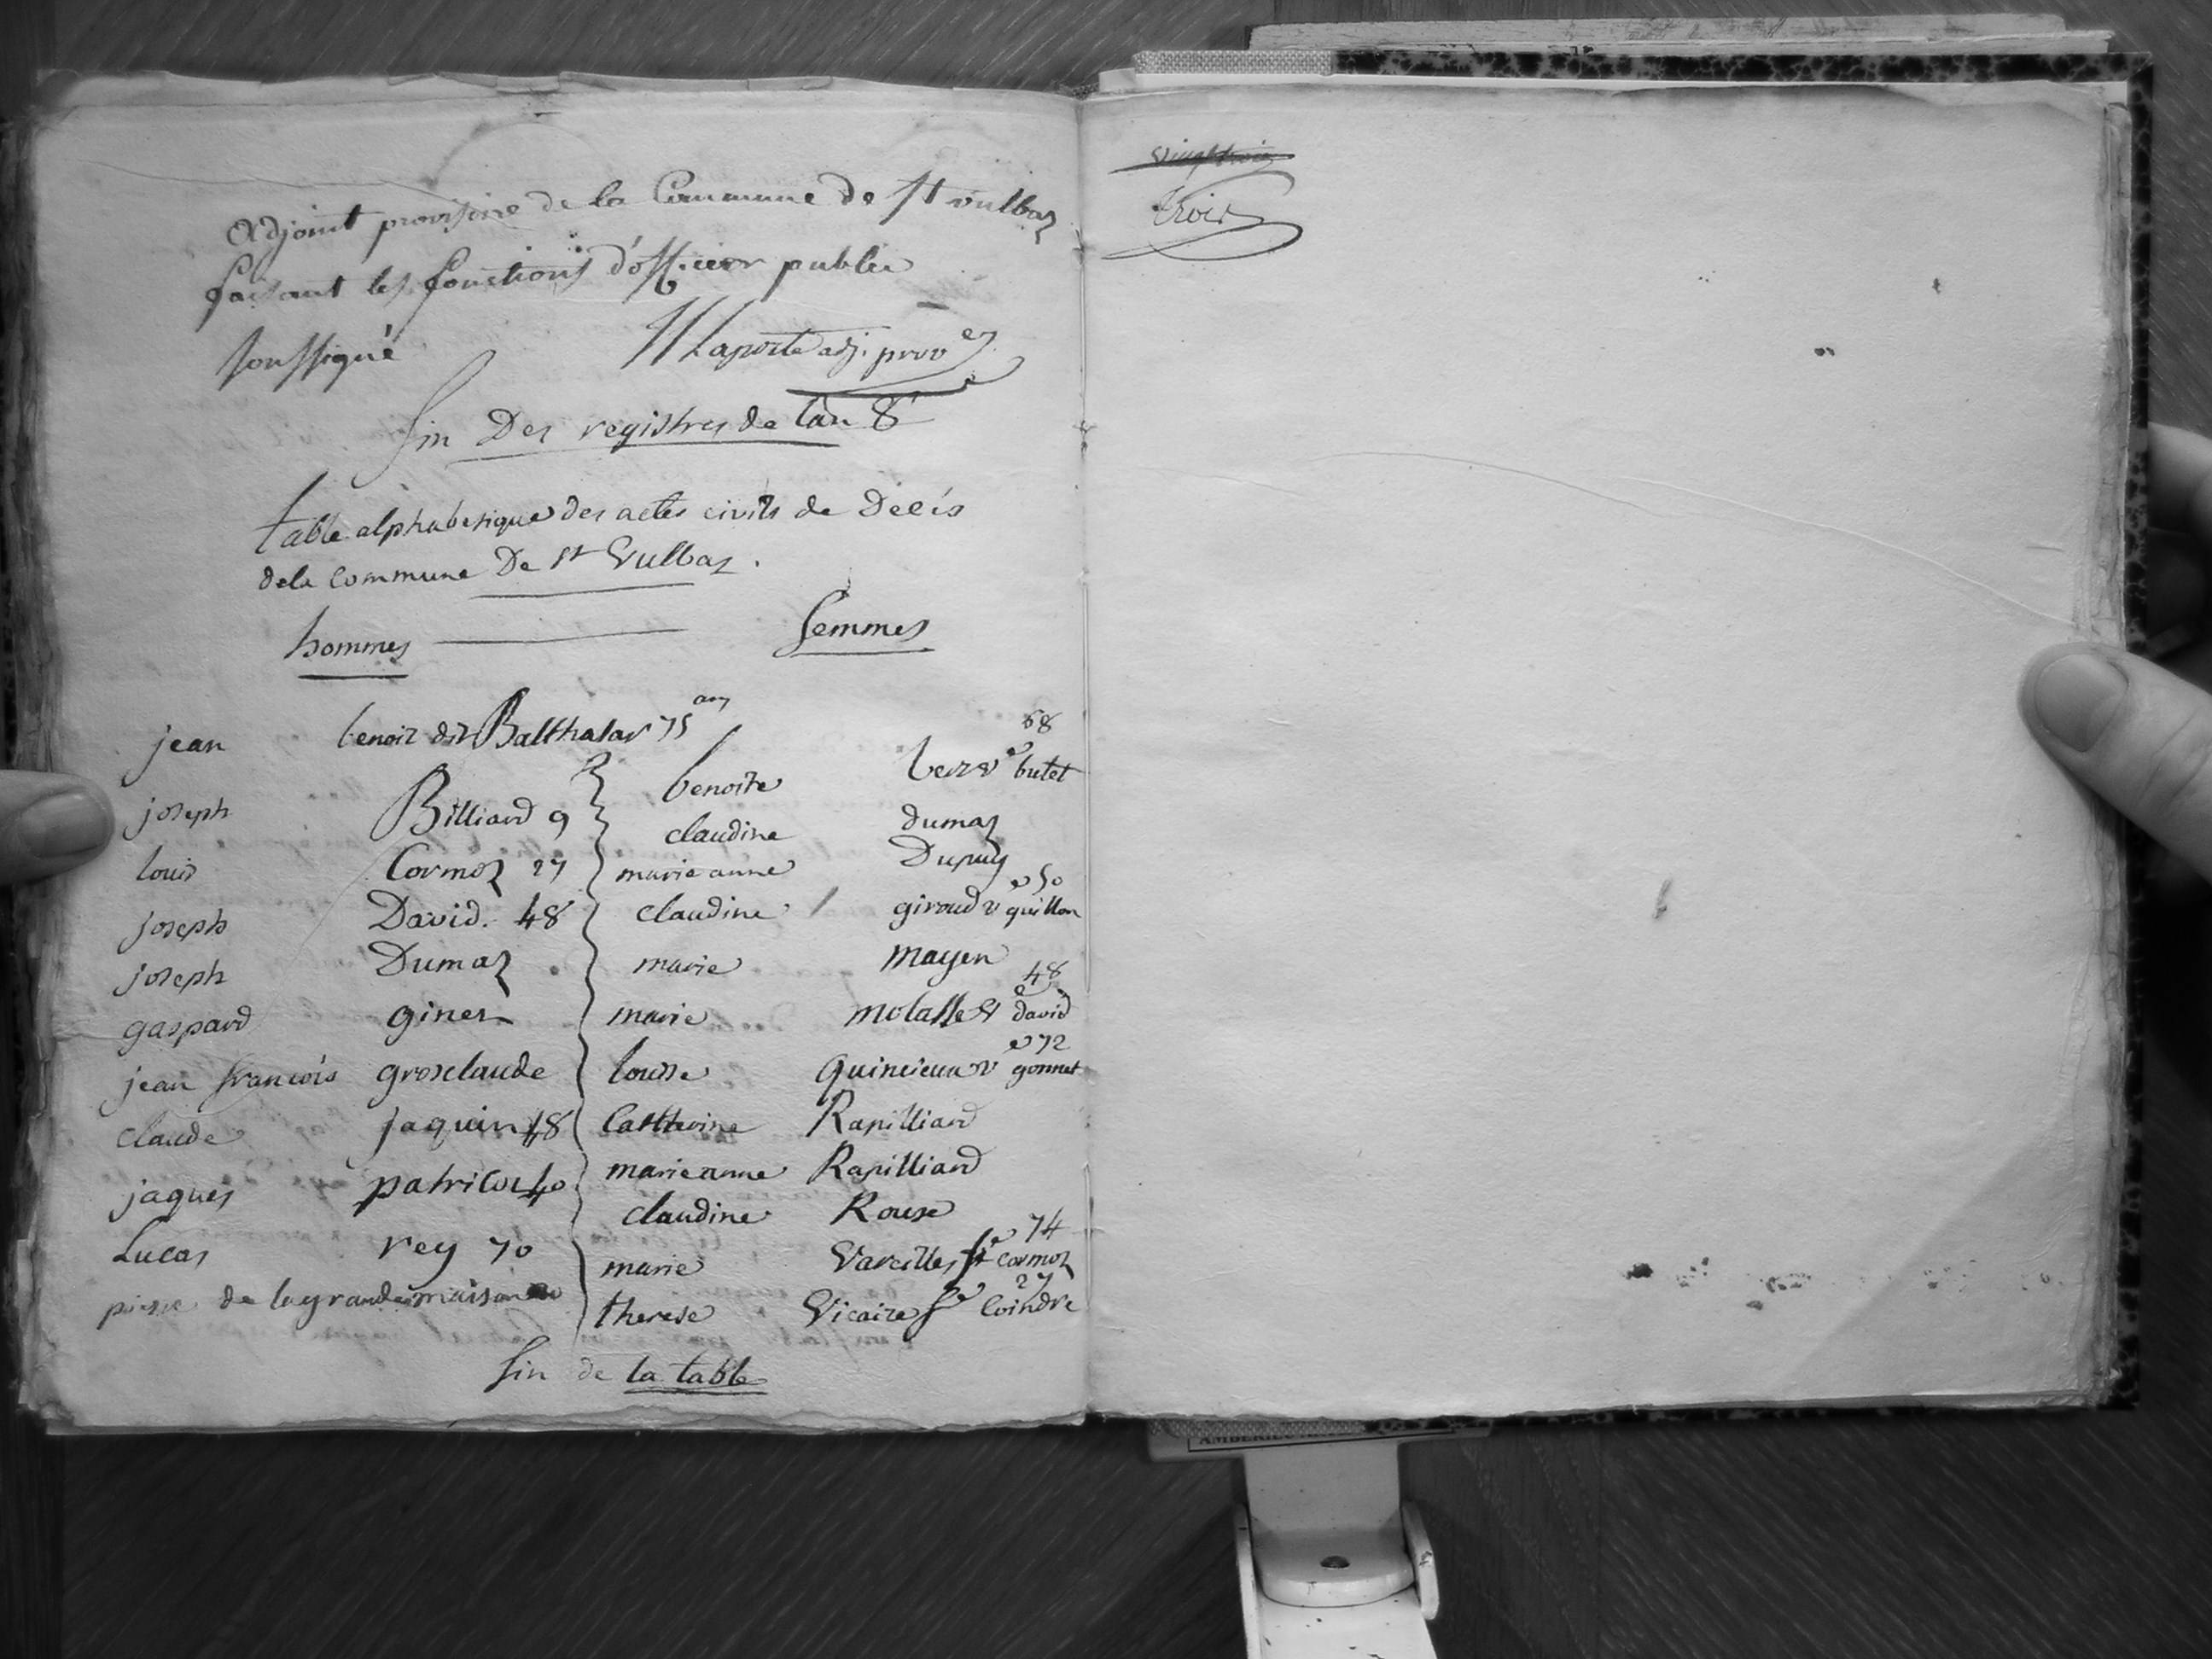 adjoint provisoire de la Commune de St vulbaz
faisant les fonctions d'officier public
soussigné Laporte adj. prov
fin Des registres de l'an 8
table alphabetique des actes civils de Décés
dela commune De St Vulbaz.
hommes femmes
jean benoit dit Balthasar 75 ans
joseph Billiard 9
louis Cormoz 27
joseph David. 48
joseph Dumaz
gaspard giner
jean francois grosclaude
claude jaquin 48
jaques patricot 40
Lucas rey 70
pierre de lagrandemaison
benoite ve butet 68
claudine dumaz
marie anne Dupuy
claudine giroud ve quillon 50
marie mayen
marie molasse ve david 48
louise Quincieux ve gonnet 72
Catherine Rapilliard
marie anne Rapilliard
claudine Rouse
marie Vareilles fe cormoz 74
therese Vicaire fe Coindre 27
fin de la table
vingt trois
trois